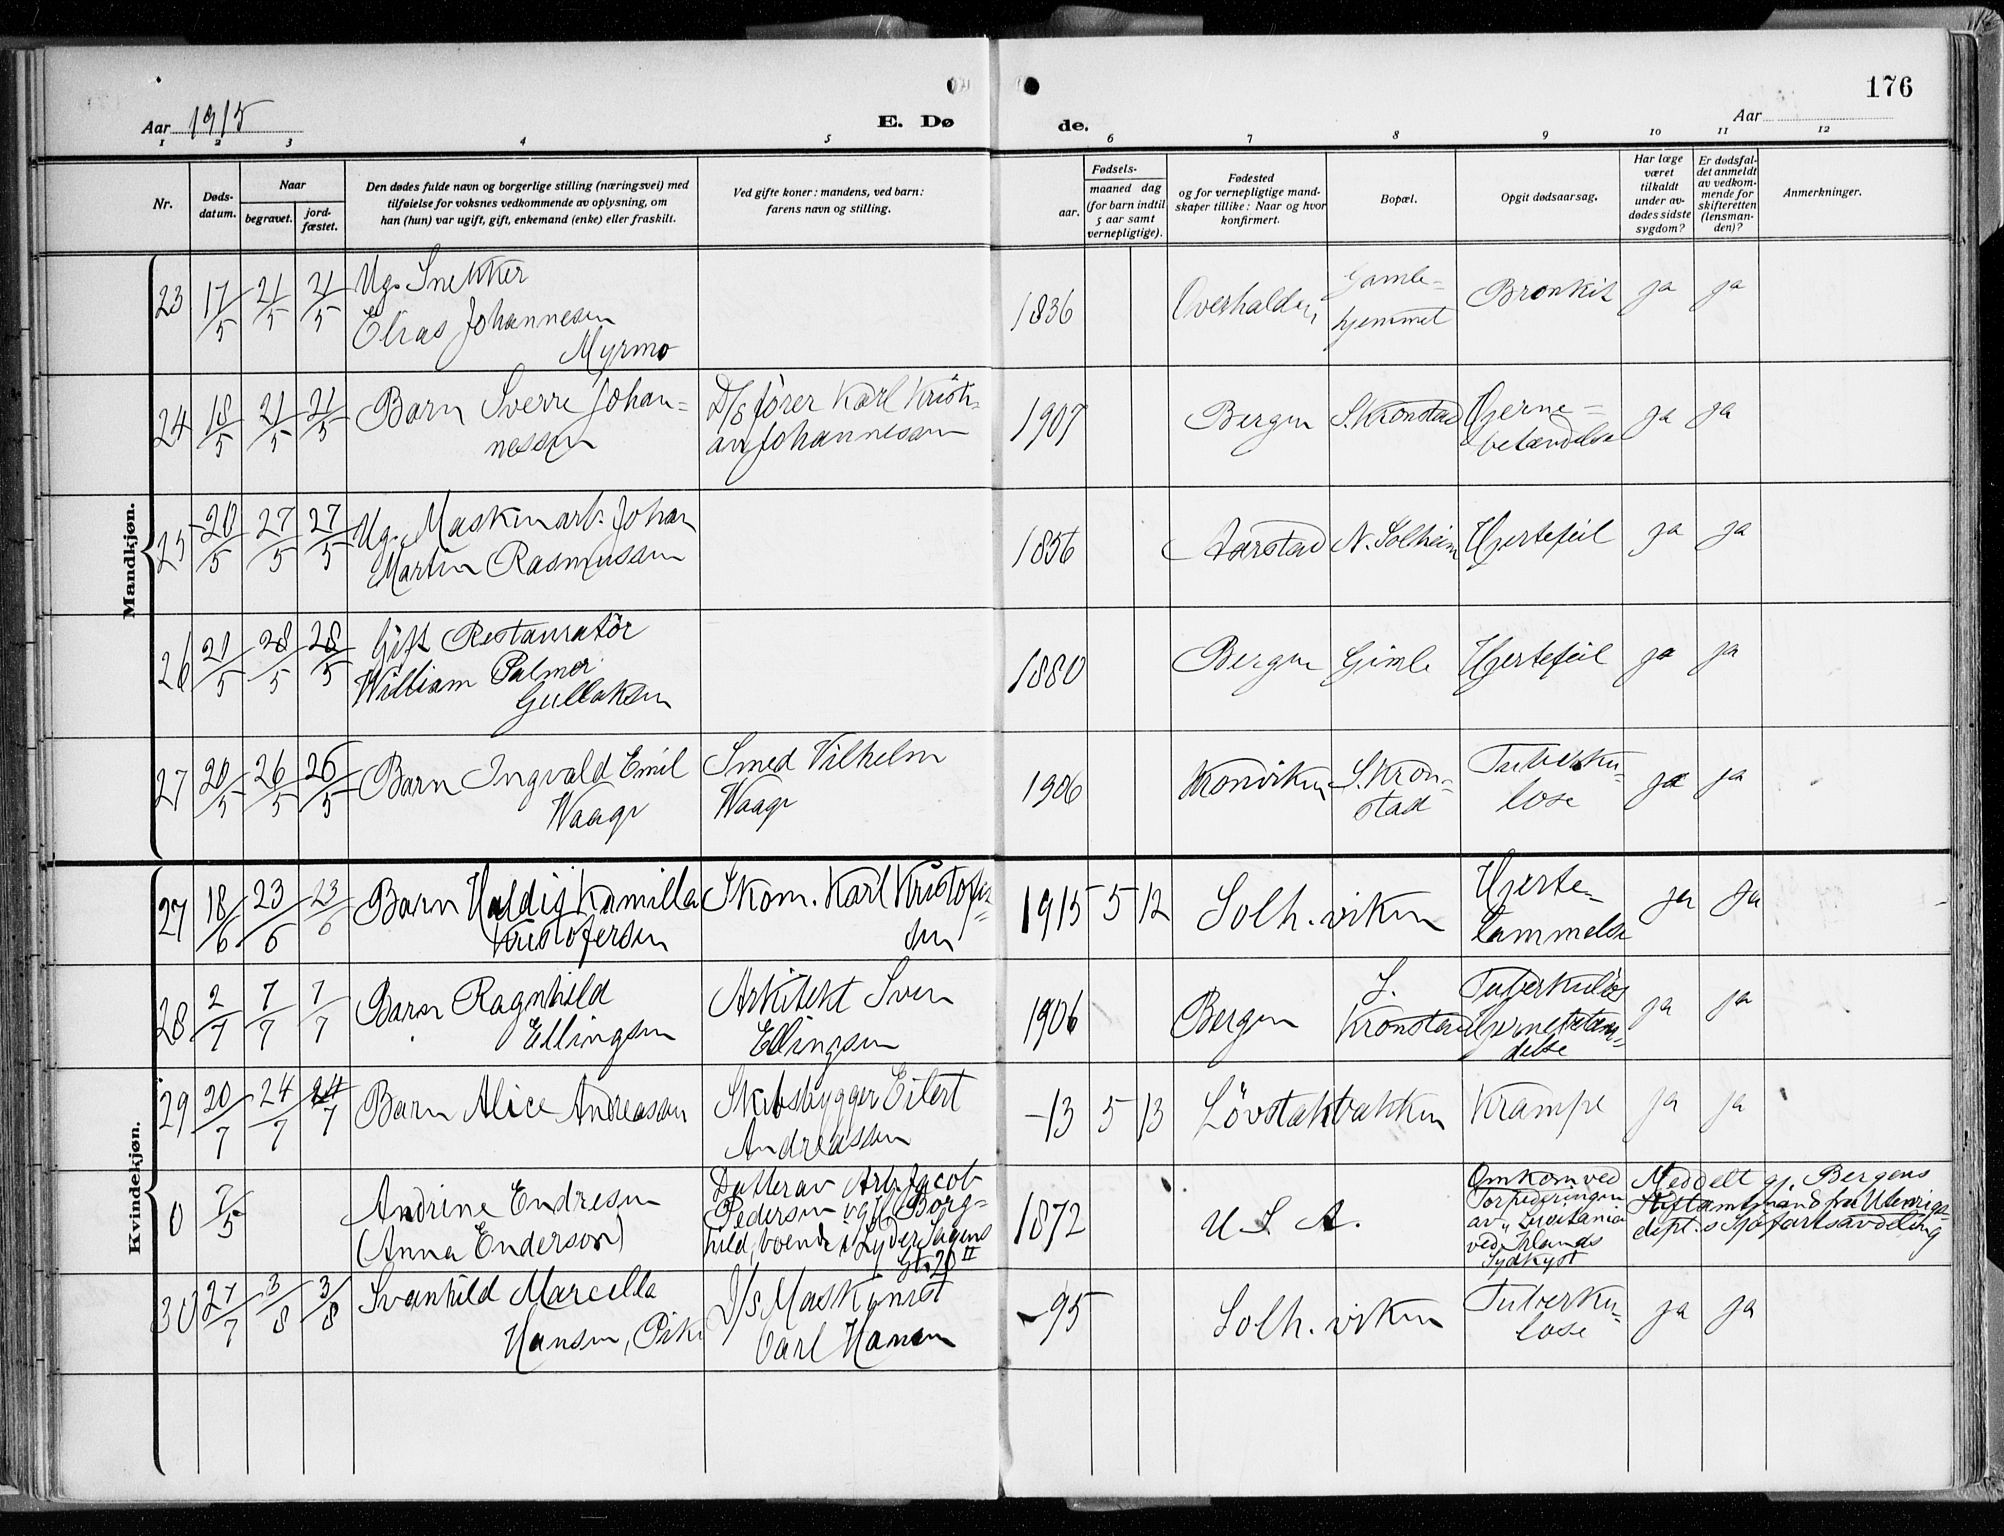 176
Aar 1915
E. Dø
de.
Aar
1 2 3 4 5 6 7 8 9 10 11 12
Nr.
Døds-
datum.
Naar
begravet.
jord-
fæstet.
Den dødes fulde navn og borgerlige stilling (næringsvei) med
tilføielse for voksnes vedkommende av oplysning, om
han (hun) var ugift, gift, enkemand (enke) eller fraskilt.
Ved gifte koner: mandens, ved barn:
farens navn og stilling.
Fødsels-
aar.
maaned dag
(for barn indtil
5 aar samt
vernepligtige).
Fødested
og for vernepligtige mand-
skaper tillike: Naar og hvor
konfirmert.
Bopæl.
Opgit dødsaarsag.
Har læge
været
tilkaldt
under av-
dødes sidste
sygdom?
Er dødsfal-
det anmeldt
av vedkom-
mende for
skifteretten
(lensman-
den)?
Anmerkninger.
Mandkjøn.
23 17/5 21/5 21/5
Ug. Snekker
Elias Johannesen
Myrmo
1836
Overhalden
Gamle-
hjemmet
Bronkit
ja ja
24 18/5 21/5 21/5
Barn Sverre Johan-
nessen
D/s fører Karl Kristi-
an Johannessen
1907
Bergen
S. Kronstad
Hjerne-
betændelse
ja ja
25 20/5 27/5 27/5
Ug. Maskinarb. Johan
Martin Rasmussen
1856
Aarstad
N. Solheim
Hjertefeil
ja ja
26 21/5 28/5 28/5
Gift Restauratør
William Palmer
Gullaksen
1880
Bergen
Gimle
Hjertefeil
ja ja
27 20/5 26/5 26/5
Barn Ingvald Emil
Waage
Smed Vilhelm
Waage
1906
Kronviken
S. Kron-
stad
Tuberku-
lose
ja ja
Kvindekjøn.
27 18/6 23/6 23/6
Barn Haldis Kamilla
Kristofersen
Skom. Karl Kristofer-
sen
1915 5 12
Solh. viken
Hjerte-
lammelse
ja ja
28 2/7 7/7 7/7
Barn Ragnhild
Ellingsen
Arkitekt Sven
Ellingsen
1906
Bergen
S.
Kronstad
Tuberkuløs
Hjernebetæn-
delse
ja ja
29 20/7 24/7 24/7
Barn Alice Andreassen
Skibsbygger Eilert
Andreassen
-13 5 13
Løvstakbakken
Krampe
ja ja
0 7/5
Andrine Endresen
(Anna Enderson)
Datter av Arb. Jacob
Pedersen og H. Borg-
hild, boende i Lyder Sagens
Gt. 20 II
1872
U S A.
Omkom ved
Torpederingen
av "Lusitania"
ved Irlands
Sydkyst
Meddelt gj. Bergens
Stiftamtmand fra Utenrigs-
dept.s sjøfartsavdeling
30 27/7 3/8 3/8
Svanhild Marcella
Hansen, Pike
D/s Maskinist
Carl Hansen
-95
Solh. viken
Tuberku-
lose
ja ja